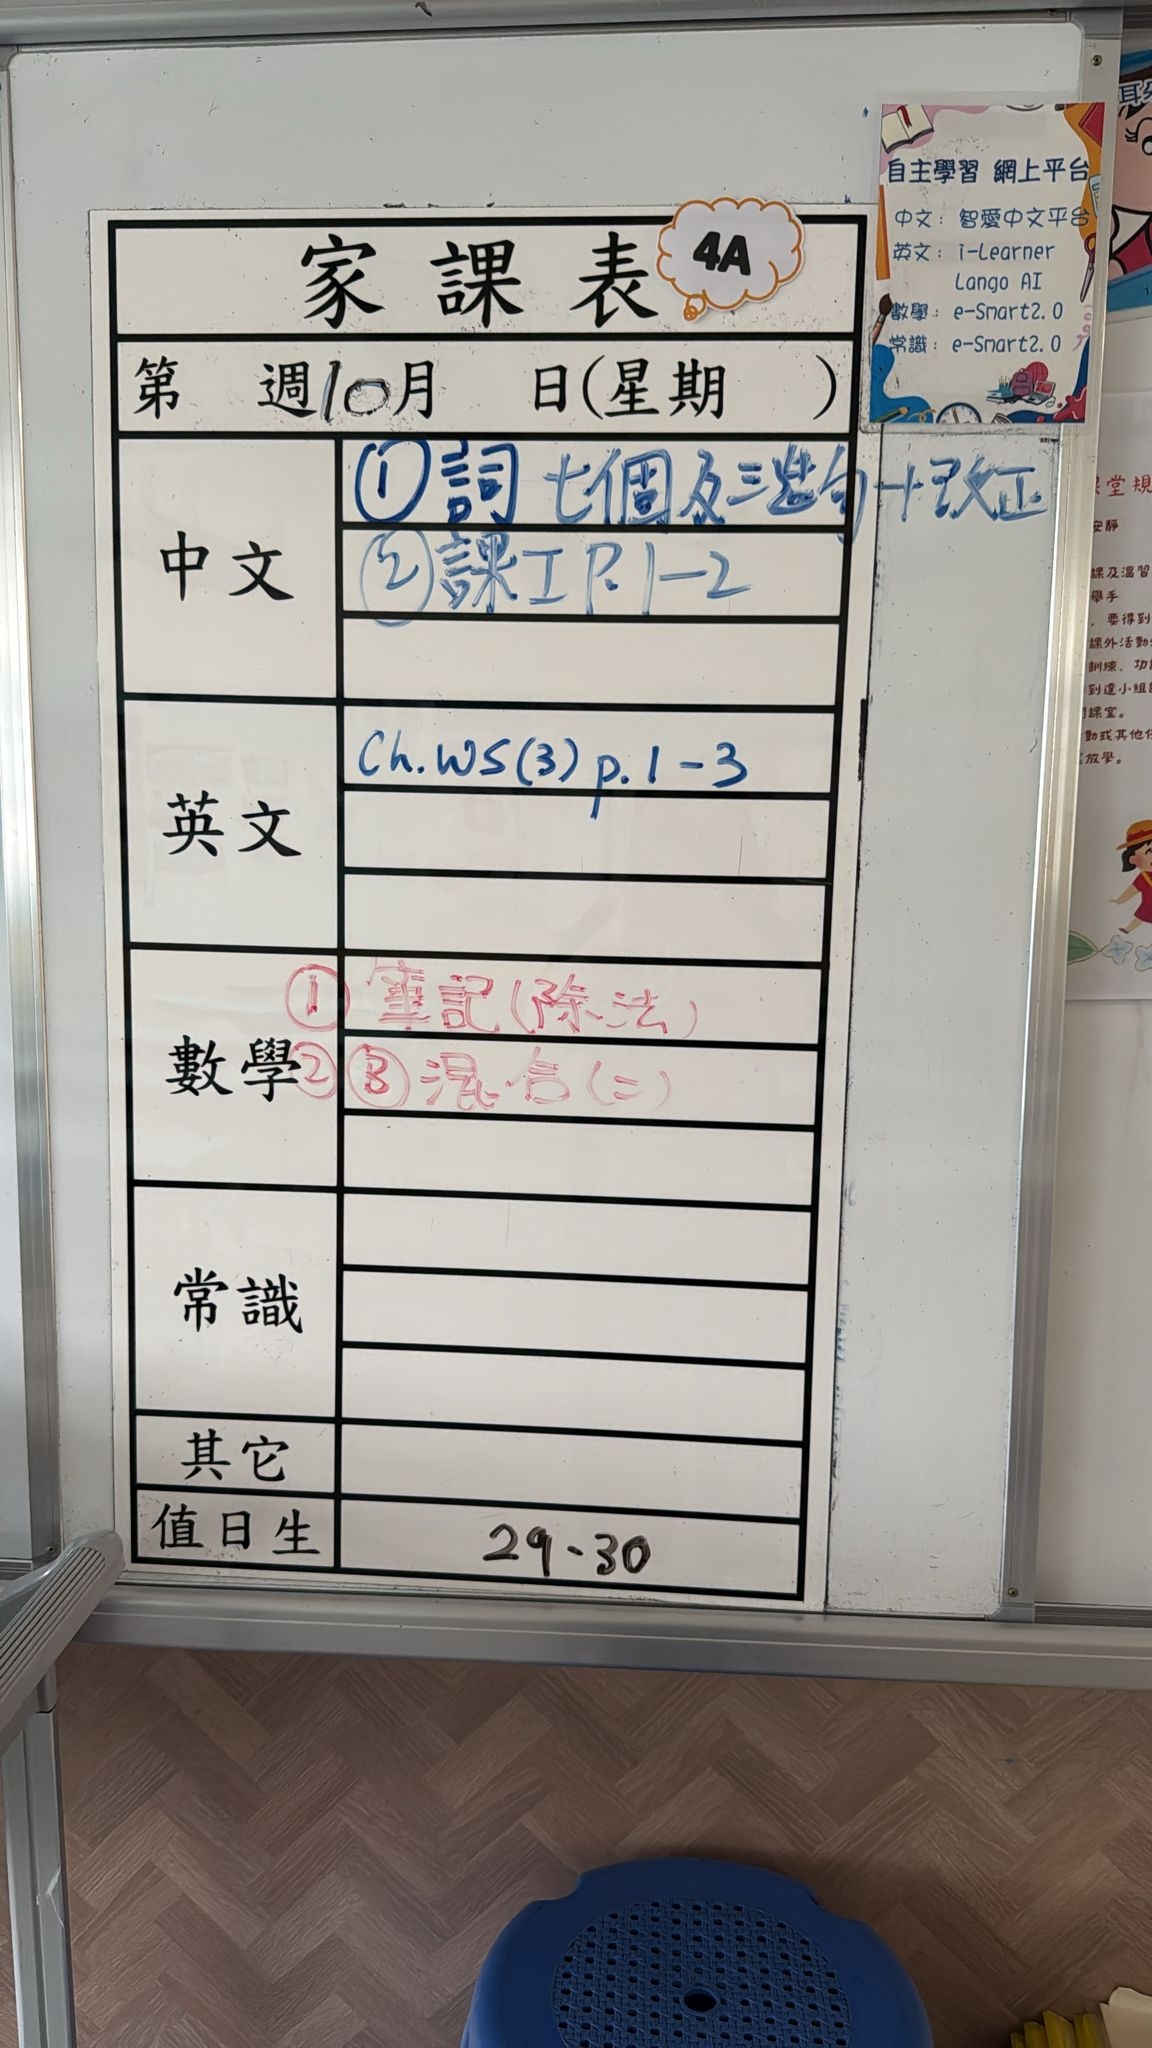 家課表
4A
第 週10月 日(星期 )
中文
①詞 七個及三造句+改正
②課工P.1-2
英文
Ch.WS(3) p.1-3
數學
① 筆記(除法)
② Ⓑ 混合(二)
常識
其它
值日生
29-30
自主學習 網上平台
中文: 智愛中文平台
英文: i-Learner
Lango AI
數學: e-Smart2.0
常識: e-Smart2.0
堂規
安靜
課及溫習
舉手
, 要得到
課外活動
訓練、功
到達小組
課室。
動或其他
放學。